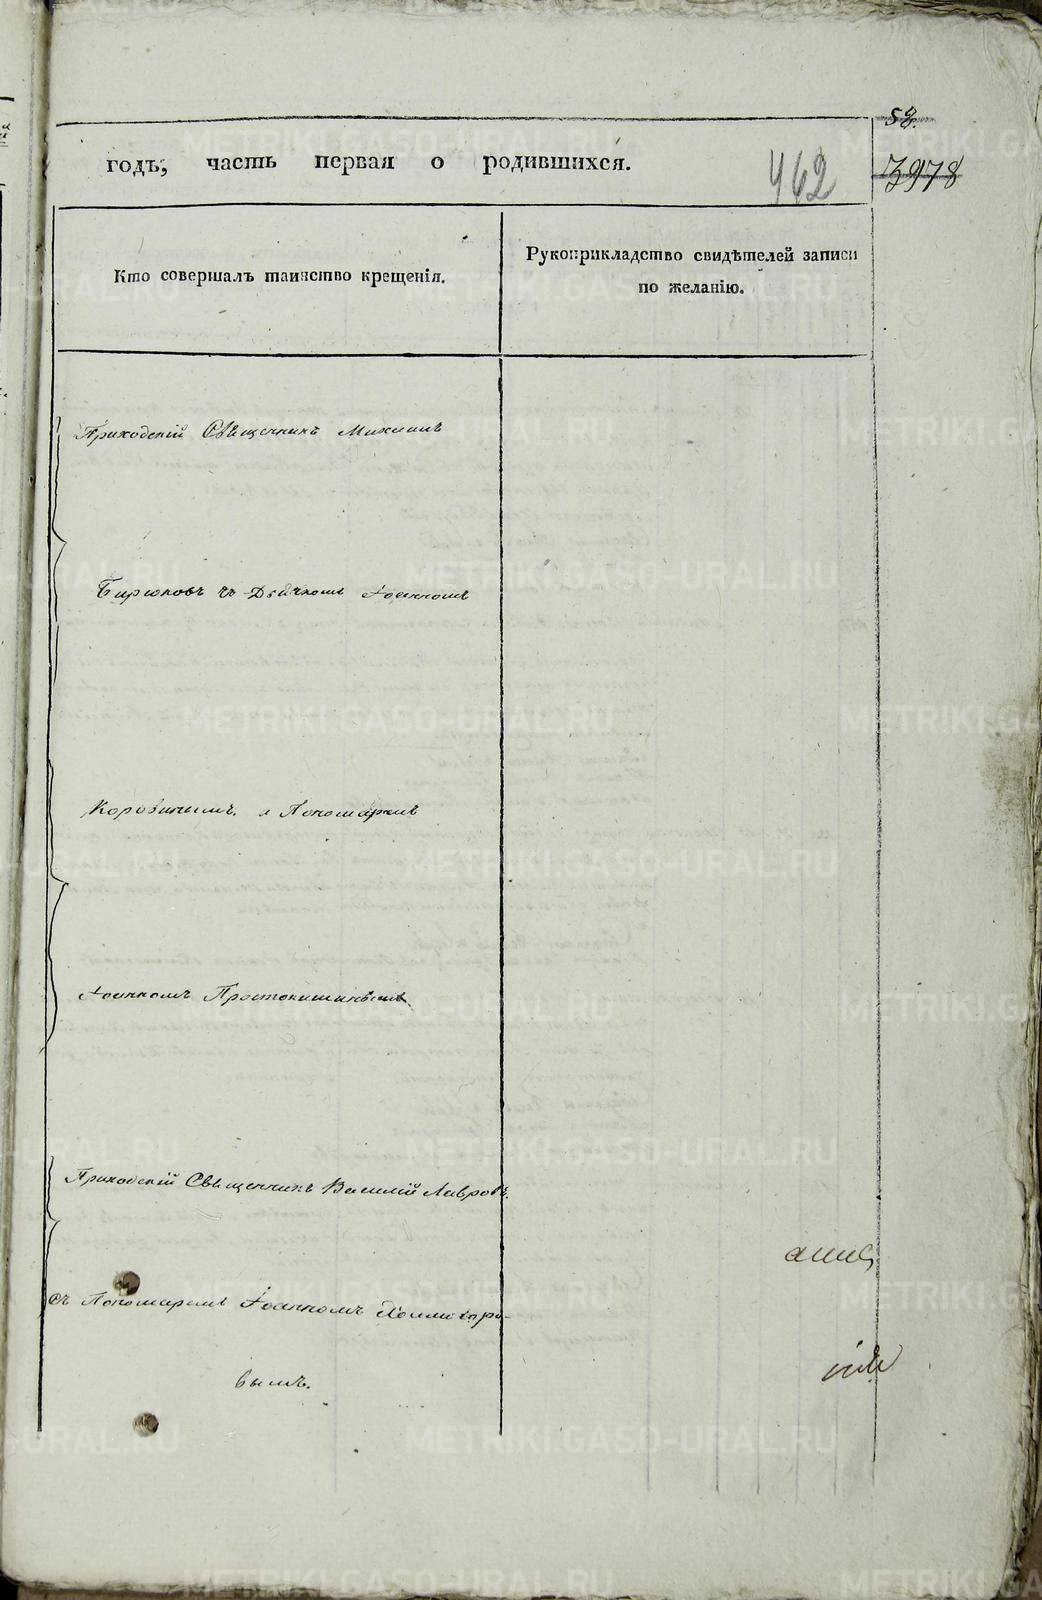 58.
годъ, часть первая о родившихся.
462
3978
Кто совершалъ таинство крещенія.
Рукоприкладство свидѣтелей записи
по желанію.
Приходскій Священникъ Михаилъ
Бирюковъ съ Дьячкомъ Іоанномъ
Коровинымъ. и Пономаремъ
Іоанномъ
Приходскій Священникъ Василій Лавровъ.
съ Пономаремъ Іоанномъ
вымъ.
METRIKI.GASO-URAL.RU